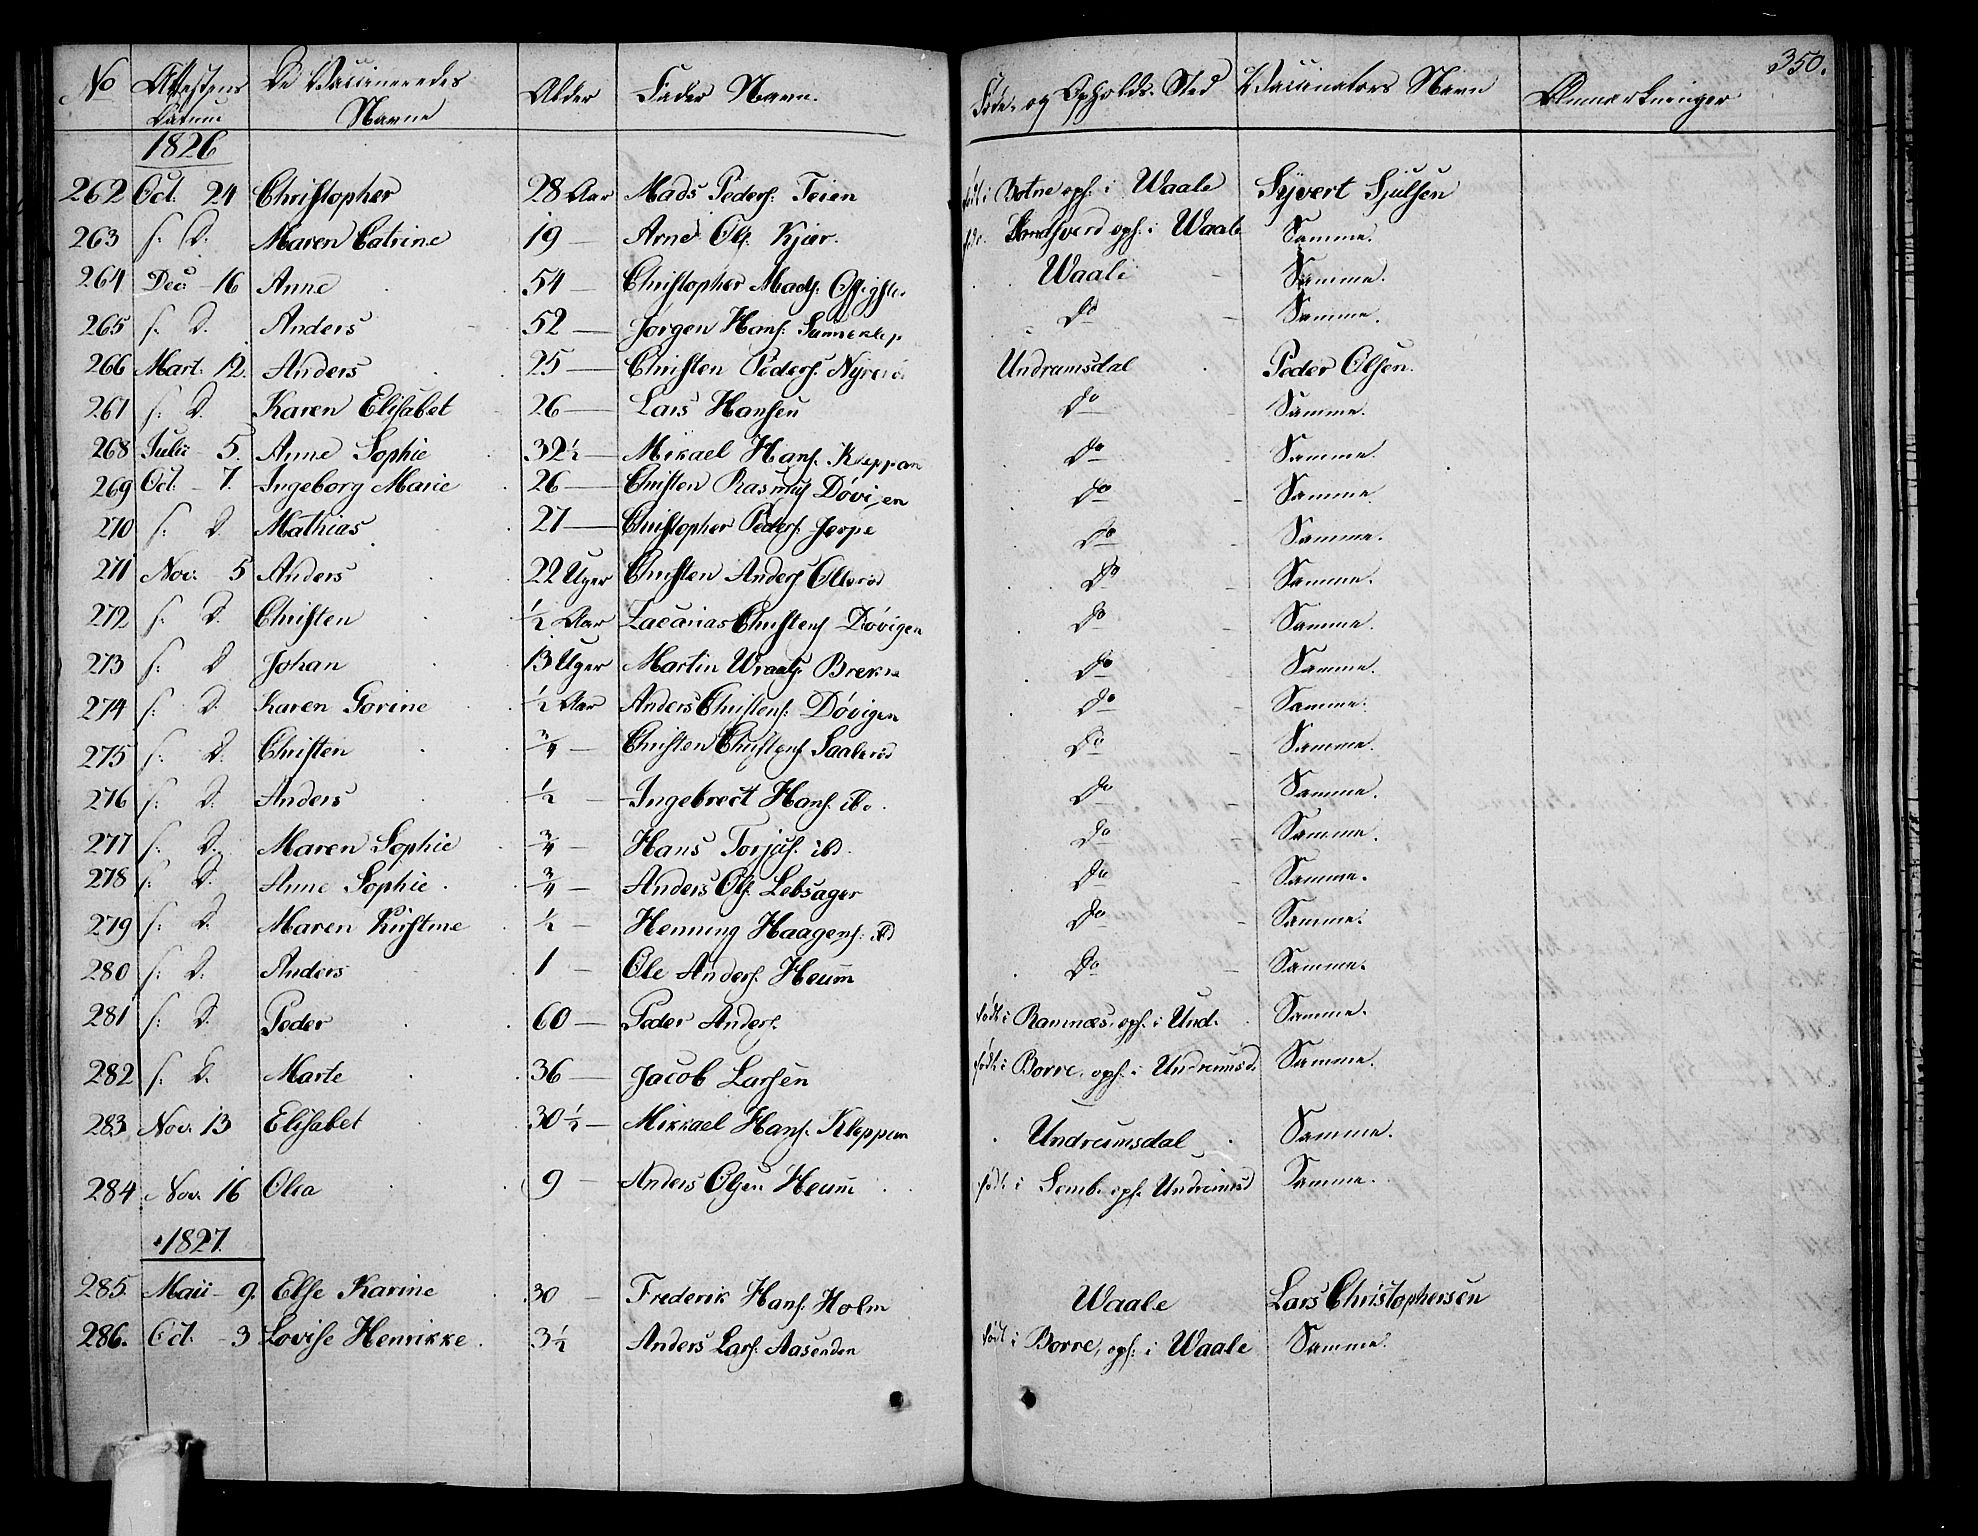 350.
No Attestens Datum De Vaccineredes Navne Alder Fader Navn. Føde- og Opholds-Sted Vaccinators Navn Anmærkninger
1826
262 Oct. 24 Christopher 28 Aar Mads Peders: Teien født i Botne oph. i Waale Syvert Sjulsen
263 s: D. Maren Catrine 19 — Arne Ols. Kjær. Sandsverd oph: i Waale Samme.
264 Dec - 16 Anne 54 — Christopher Mads: Waale Samme.
265 s: D. Anders 52 — Jørgen Hans: Do Samme.
266 Mart. 12. Anders 25 — Christen Peders. Undrumsdal Peder Olsen.
267 s: D. Karen Elisabet 26 — Lars Hansen Do Samme.
268 Julii - 5. Anne Sophie 32½ — Mikael Hans. Kleppan Do Samme.
269 Oct. - 7. Ingeborg Marie 26 — Christen Rasmus Døvigen Do Samme.
270 s: D. Mathias 27 — Christopher Peders. Jerpe Do Samme.
271 Nov. - 5 Anders 22 Uger Christen Anders Do Samme.
272 s: D. Christen ½ Aar Zacarias Christens Døvigen Do Samme.
273 s: D Johan 13 Uger Martin Brekke Do Samme.
274 s: D. Karen Gorine ½ Aar Anders Christens: Døvigen Do Samme.
275 s: D. Christen ¾ — Christen Christens Do Samme.
276 s: D. Anders ½ — Ingebrect Hans. ibd. Do Samme.
277 s: D. Maren Sophie ¾ — Hans Torjus. ibd. Do Samme.
278 s: D. Anne Sophie. ¾ — Anders Ols. Lebsager Do Samme.
279 s: D. Maren Kristine ½ — Henning Haagens: ibd Do Samme.
280 s: D. Anders 1 — Ole Anders. Heum Do Samme.
281 s: D. Peder 60 — Peder Anders. født i Ramnæs. oph. i Und. Samme.
282 s: D. Marte 36 — Jacob Larsen født i Borre, oph. i Undrumsd. Samme.
283 Nov. 13 Elisabet 30½ — Mikkael Hans. Kleppan Undrumsdal Samme.
284 Nov. 16 Olea 9 — Anders Olsen Heum født i Semb. oph. Undrumsd Samme.
1827.
285. Maii - 9. Else Karine 30 — Frederik Hans. Holm Waale Lars Christophersen
286. Oct. - 3 Lovise Henrikke. 3½ Anders Lars. Aasenden født i Borre, oph: i Waale Samme.